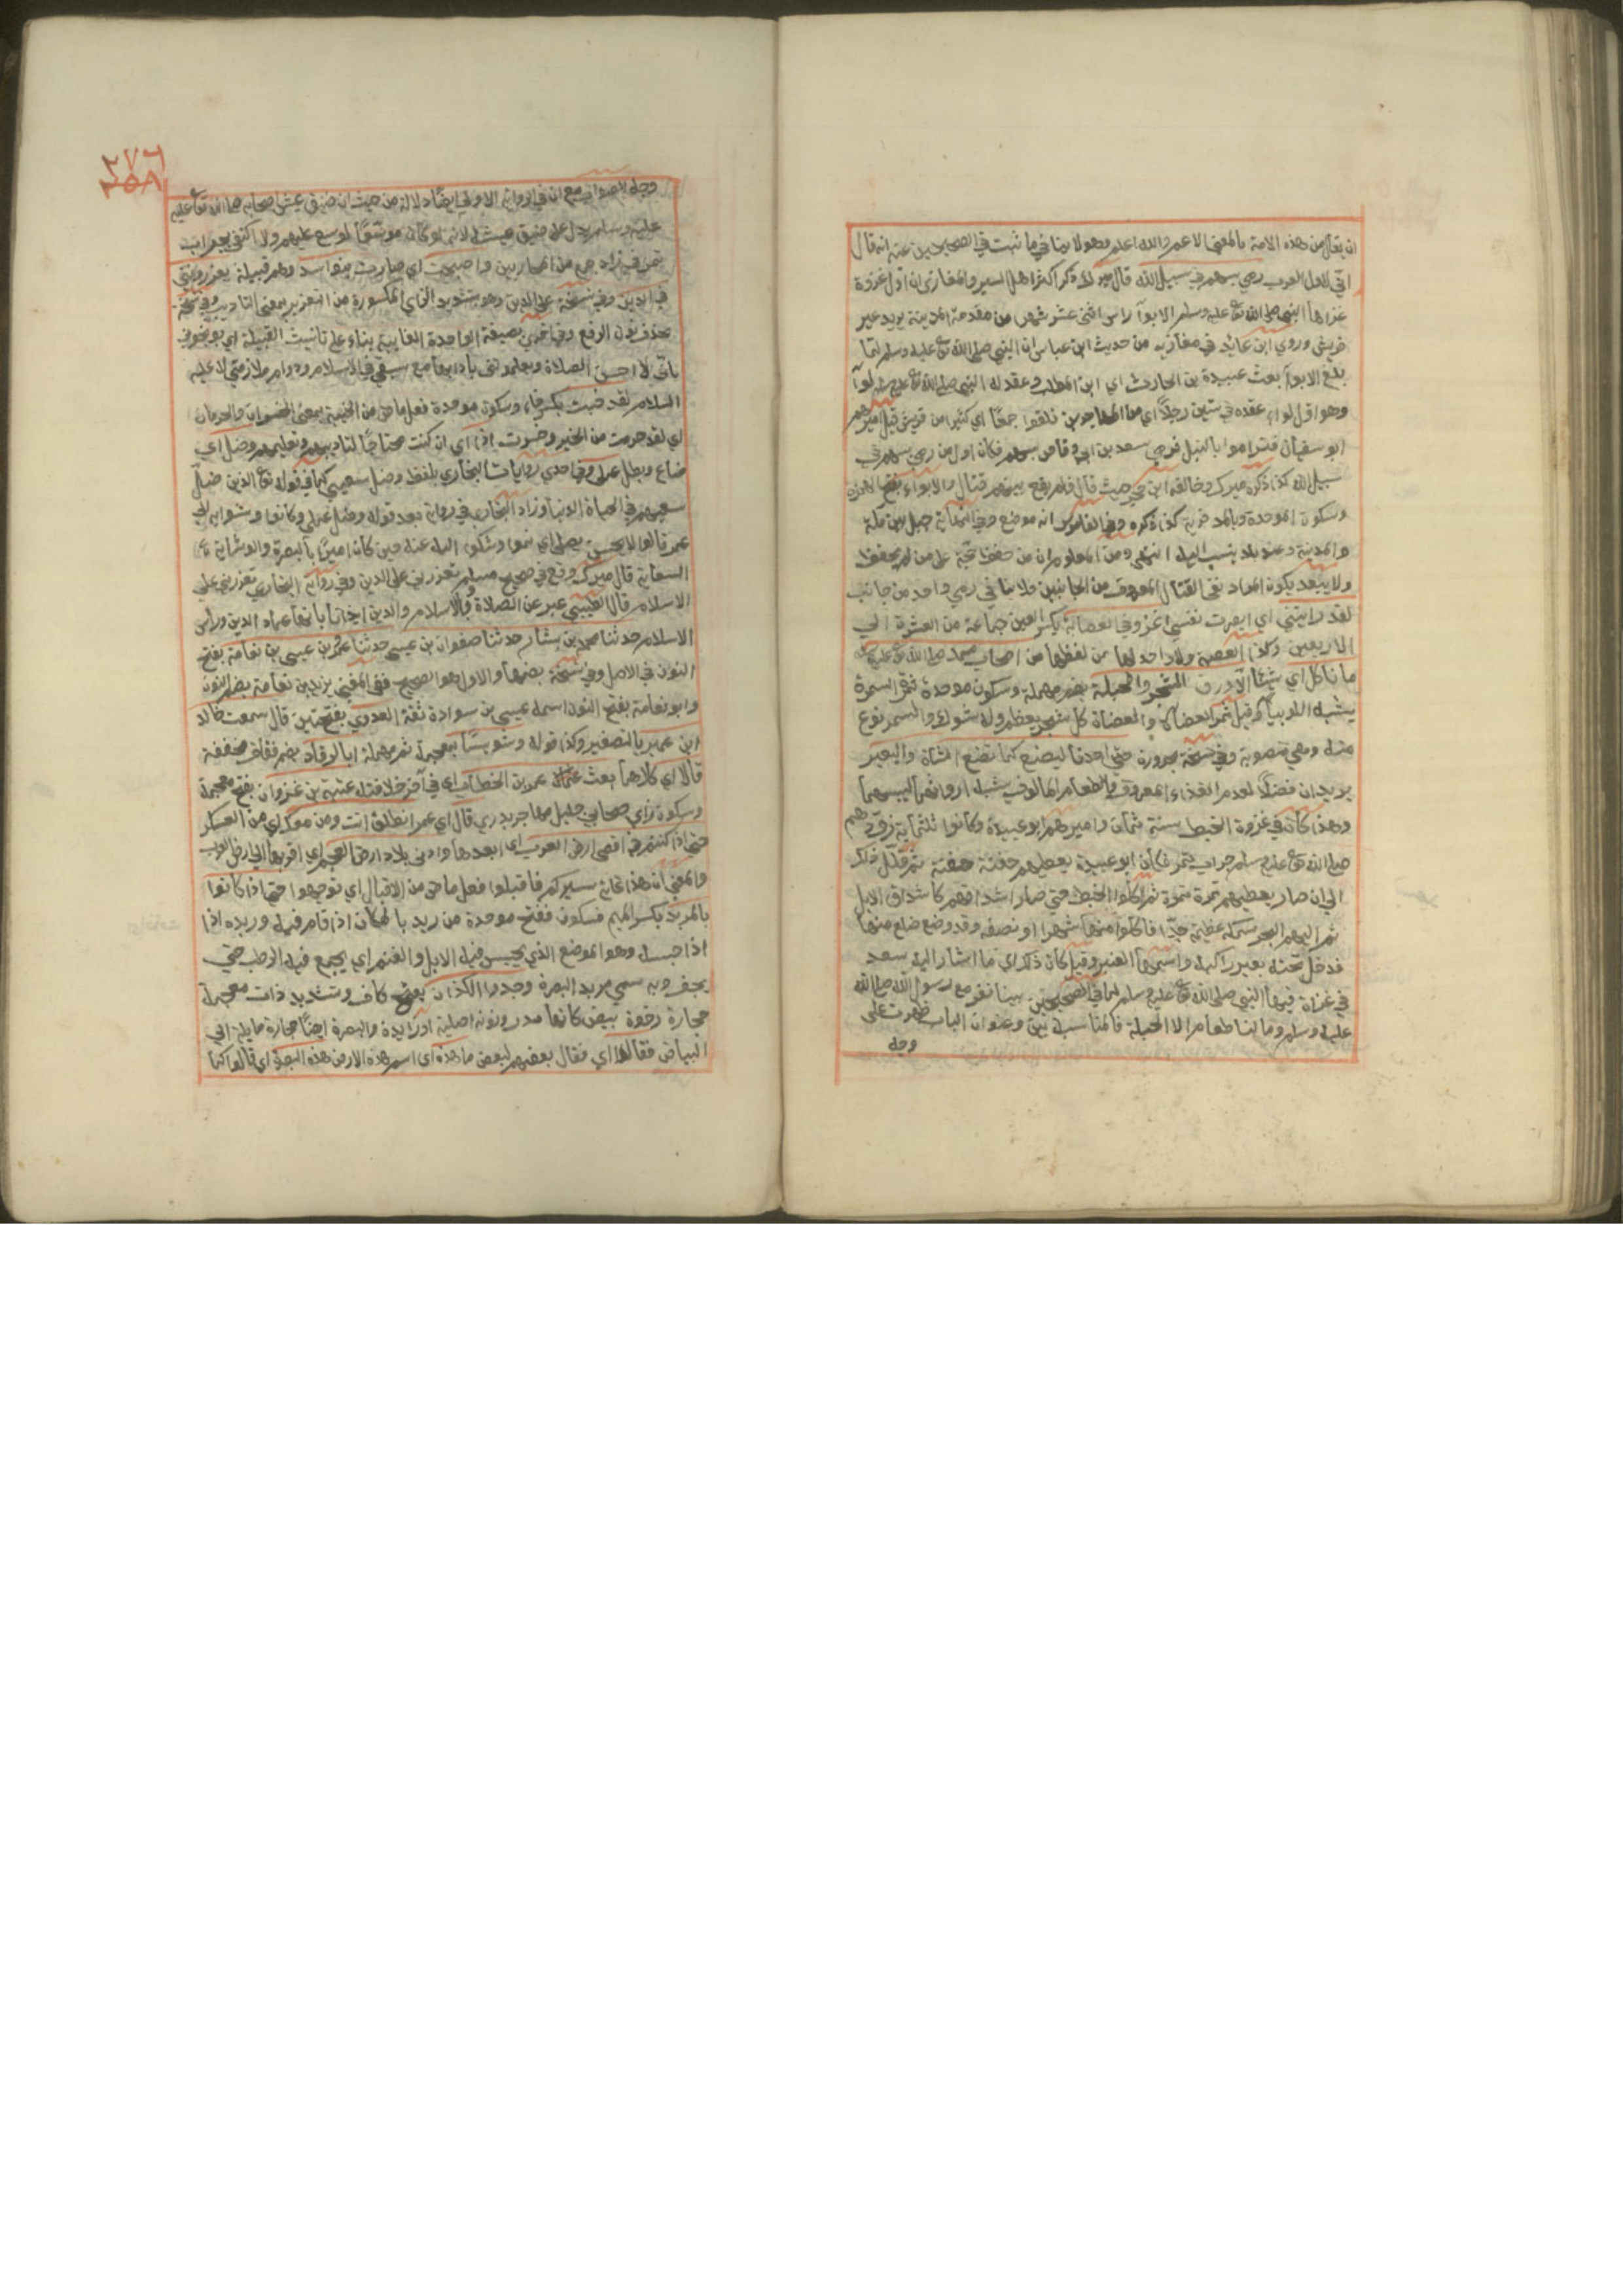 ان يقال من هذه الامة بالمعنى الاعم والله اعلم وهو لا ينافي ما ثبت في الصحيحين عنه انه قال
اني لاول العرب رمي بسهم في سبيل الله قال ميرك ذكر اكثر اهل السير والمغازي ان اول غزوة
غزاها النبي صلى الله تع عليه وسلم الابوآ راس اثنى عشر شهرا من مقدمه المدينة يريد عير
قريش وروي ابن عائذ في مغازيه من حديث ابن عباس ان النبي صلى الله تع عليه وسلم لما
بلغ الابوآ بعث عبيدة بن الحارث اي ابن المطلب وعقد له النبي صلى الله تع عليه وسلم لوآ
وهو اول لواء عقده في ستين رجلا اي من المهاجرين فلقوا جمعا اي كثيرا من قريش قيل اميرهم
ابو سفيان فتراموا بالنبل فرمي سعد بن ابي وقاص بسهم فكان اول من رمي بسهم في
سبيل الله كذا ذكره ميرك وخالفه ابن حجر حيث قال فلم يقع بينهم قتال والابواء بفتح الهمزة
وسكون الموحدة وبالمد قرية كذا ذكره وفي القاموس انه موضع وفي النهاية جبل بين مكة
والمدينة وعنده بلد ينسب اليه انتهى ومن المعلوم ان من حفظ حجة على من لم يحفظ
ولا يبعد يكون المراد نفى القتال المعروف من الجانبين فلا ينافي رمي واحد من جانب
لقد رايتني اي ابصرت نفسي اغزو في العصابة بكسر العين جماعة من العشرة الي
الاربعين وكذا العصبة ولا واحد لها من لفظها من اصحاب محمد صلى الله تع عليه وسلم
ما ناكل اي شيئا الا ورق الشجر والحبلة بضم مهملة وسكون موحدة ثمر السمرة
يشبه اللوبيا وقيل ثمر العضاه والعضاة كل شجر يعظم وله شوك والسمر نوع
منه وهي منصوبة وفي نسخة مجرورة حتى احدنا ليضع كما تضع الشاة والبعير
يريد ان فضلاً لعدم الغذاء المعروف والطعام المالوف يشبه ارواثهما ليبسهما
وهذا كان في غزوة الخبط سنة ثمان واميرهم ابو عبيدة وكانوا ثلثماية زودهم
صلى الله تع عليه وسلم جراب تمر فكان ابو عبيدة يعطيهم حفنة حفنة ثم قلل ذلك
الي ان صار يعطيهم تمرة تمرة ثم اكلوا الخبط حتى صار اشداقهم كاشداق الابل
ثم القي اليهم البحر سمكة عظيمة جدا فاكلوا منها شهرا او نصفه وقد وضع ضلع منها
فدخل تحته بعير راكبه واسمها العنبر وقيل كان ذلك اي ما اشار اليه سعد
في غزاة فيها النبي صلى الله تع عليه وسلم لما في الصحيحين بينا نغزو مع رسول الله صلى الله
عليه وسلم وما لنا طعام الا الحبلة فالمناسبة بين وعنوان الباب ظهرت على
وجه
٢٧٦
٢٥٨
وجه الصواب مع ان في الرواية الاولى ايضا دلالة من حيث ان ضيق عيش اصحابه صلى الله تعا عليه
عليه وسلم يدل على ضيق عيشه لانه لو كان موسعا لوسع عليهم ولا اكتفى بجراب
تمر في زاد جمع من المحاربين واصبحت اي صارت بنو اسد وهم قبيلة يعزرونني
في الدين وفي نسخة على الدين وهو بتشديد الزاي المكسورة من التعزير بمعنى التاديب وفي نسخة
بحذف نون الرفع وفي اخرى بصيغة الواحدة الغايبة بناء على تانيث القبيلة اي يوبخونني
باني لا احسن الصلاة ويعلمونني بآدابها مع سبقي في الاسلام ودوام ملازمتي له عليه
السلام لقد خبت بكسر خاء وسكون موحدة فعل ماض من الخيبة بمعنى الخسران والحرمان
اي لقد حرمت من الخير وخسرت اذا اي ان كنت محتاجا لتاديبهم وتعليمهم وضل اي
ضاع وبطل عملي وفي احدي روايات البخاري بلفظ وضل سعيي كما في قوله تع الذين ضل
سعيهم في الحياة الدنيا وزاد البخاري في رواية بعد قوله وضل عملي وكانوا وشوا به الي
عمر قالوا لا يحسن يصلي اي نموا وشكوا اليه عنه حين كان اميرا بالبصرة والوشاية
السعاية قال ميرك وقع في صحيح مسلم تعزرني على الدين وفي رواية البخاري تعزرني على
الاسلام قال الطيبي عبر عن الصلاة بالاسلام والدين ايذانا بانها عماد الدين وراس
الاسلام حدثنا محمد بن بشار حدثنا صفوان بن عيسى حدثنا عمرو بن عيسى بن نعامة بفتح
النون في الاصل وفي نسخة بضمها والاول هو الصحيح ففي المغني يزيد بن نعامة بضم النون
وابو نعامة بفتح النون اسمه عيسى بن سوادة ثقة العدوي بفتحتين قال سمعت خالد
ابن عمير بالتصغير وكذا قوله وشويسا بمعجمة ثم مهملة ابا الرقاد بضم ففاف مخففة
قالا اي كلاهما بعث عمر بن الخطاب اي في آخر خلافته عتبة بن غزوان بفتح معجمة
وسكون زاي صحابي جليل مهاجر بدري قال اي عمر انطلق انت ومن معك اي من العسكر
حتى اذا كنتم في اقصى ارض العرب اي ابعدها وادنى بلاد ارض العجم اي اقربها الي ارض العرب
والمعنى ان هذا غاية سيركم فاقبلوا فعل ماض من الاقبال اي توجهوا حتى اذا كانوا
بالمربد بكسر الميم فسكون ففتح موحدة من ربد بالمكان اذا قام فيه وربده اذا
اذا حبسه وهو الموضع الذي يحبس فيه الابل والغنم اي يجمع فيه الرطب حتى
يجف وبه سمي مربد البصرة وجدوا الكذان بفتح كاف وتشديد ذات معجمة
حجارة رخوة بيض كانها مدر ونونه اصلية او زايدة والبصرة ايضا حجارة مايلة الي
البياض فقالوا اي فقال بعضهم لبعض ما هذه اي اسم هذه الارض هذه البصرة اي قالوا كما